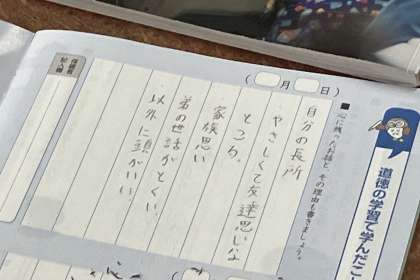 道徳の学習で学んだこ
■心に残ったお話と、その理由も書きましょう。
(　)月(　)日
自分の長所
・やさしくて友達思いな
ところ。
・家族思い
・弟の世話がとくい。
・以外に頭がいい。
保護者
記入欄